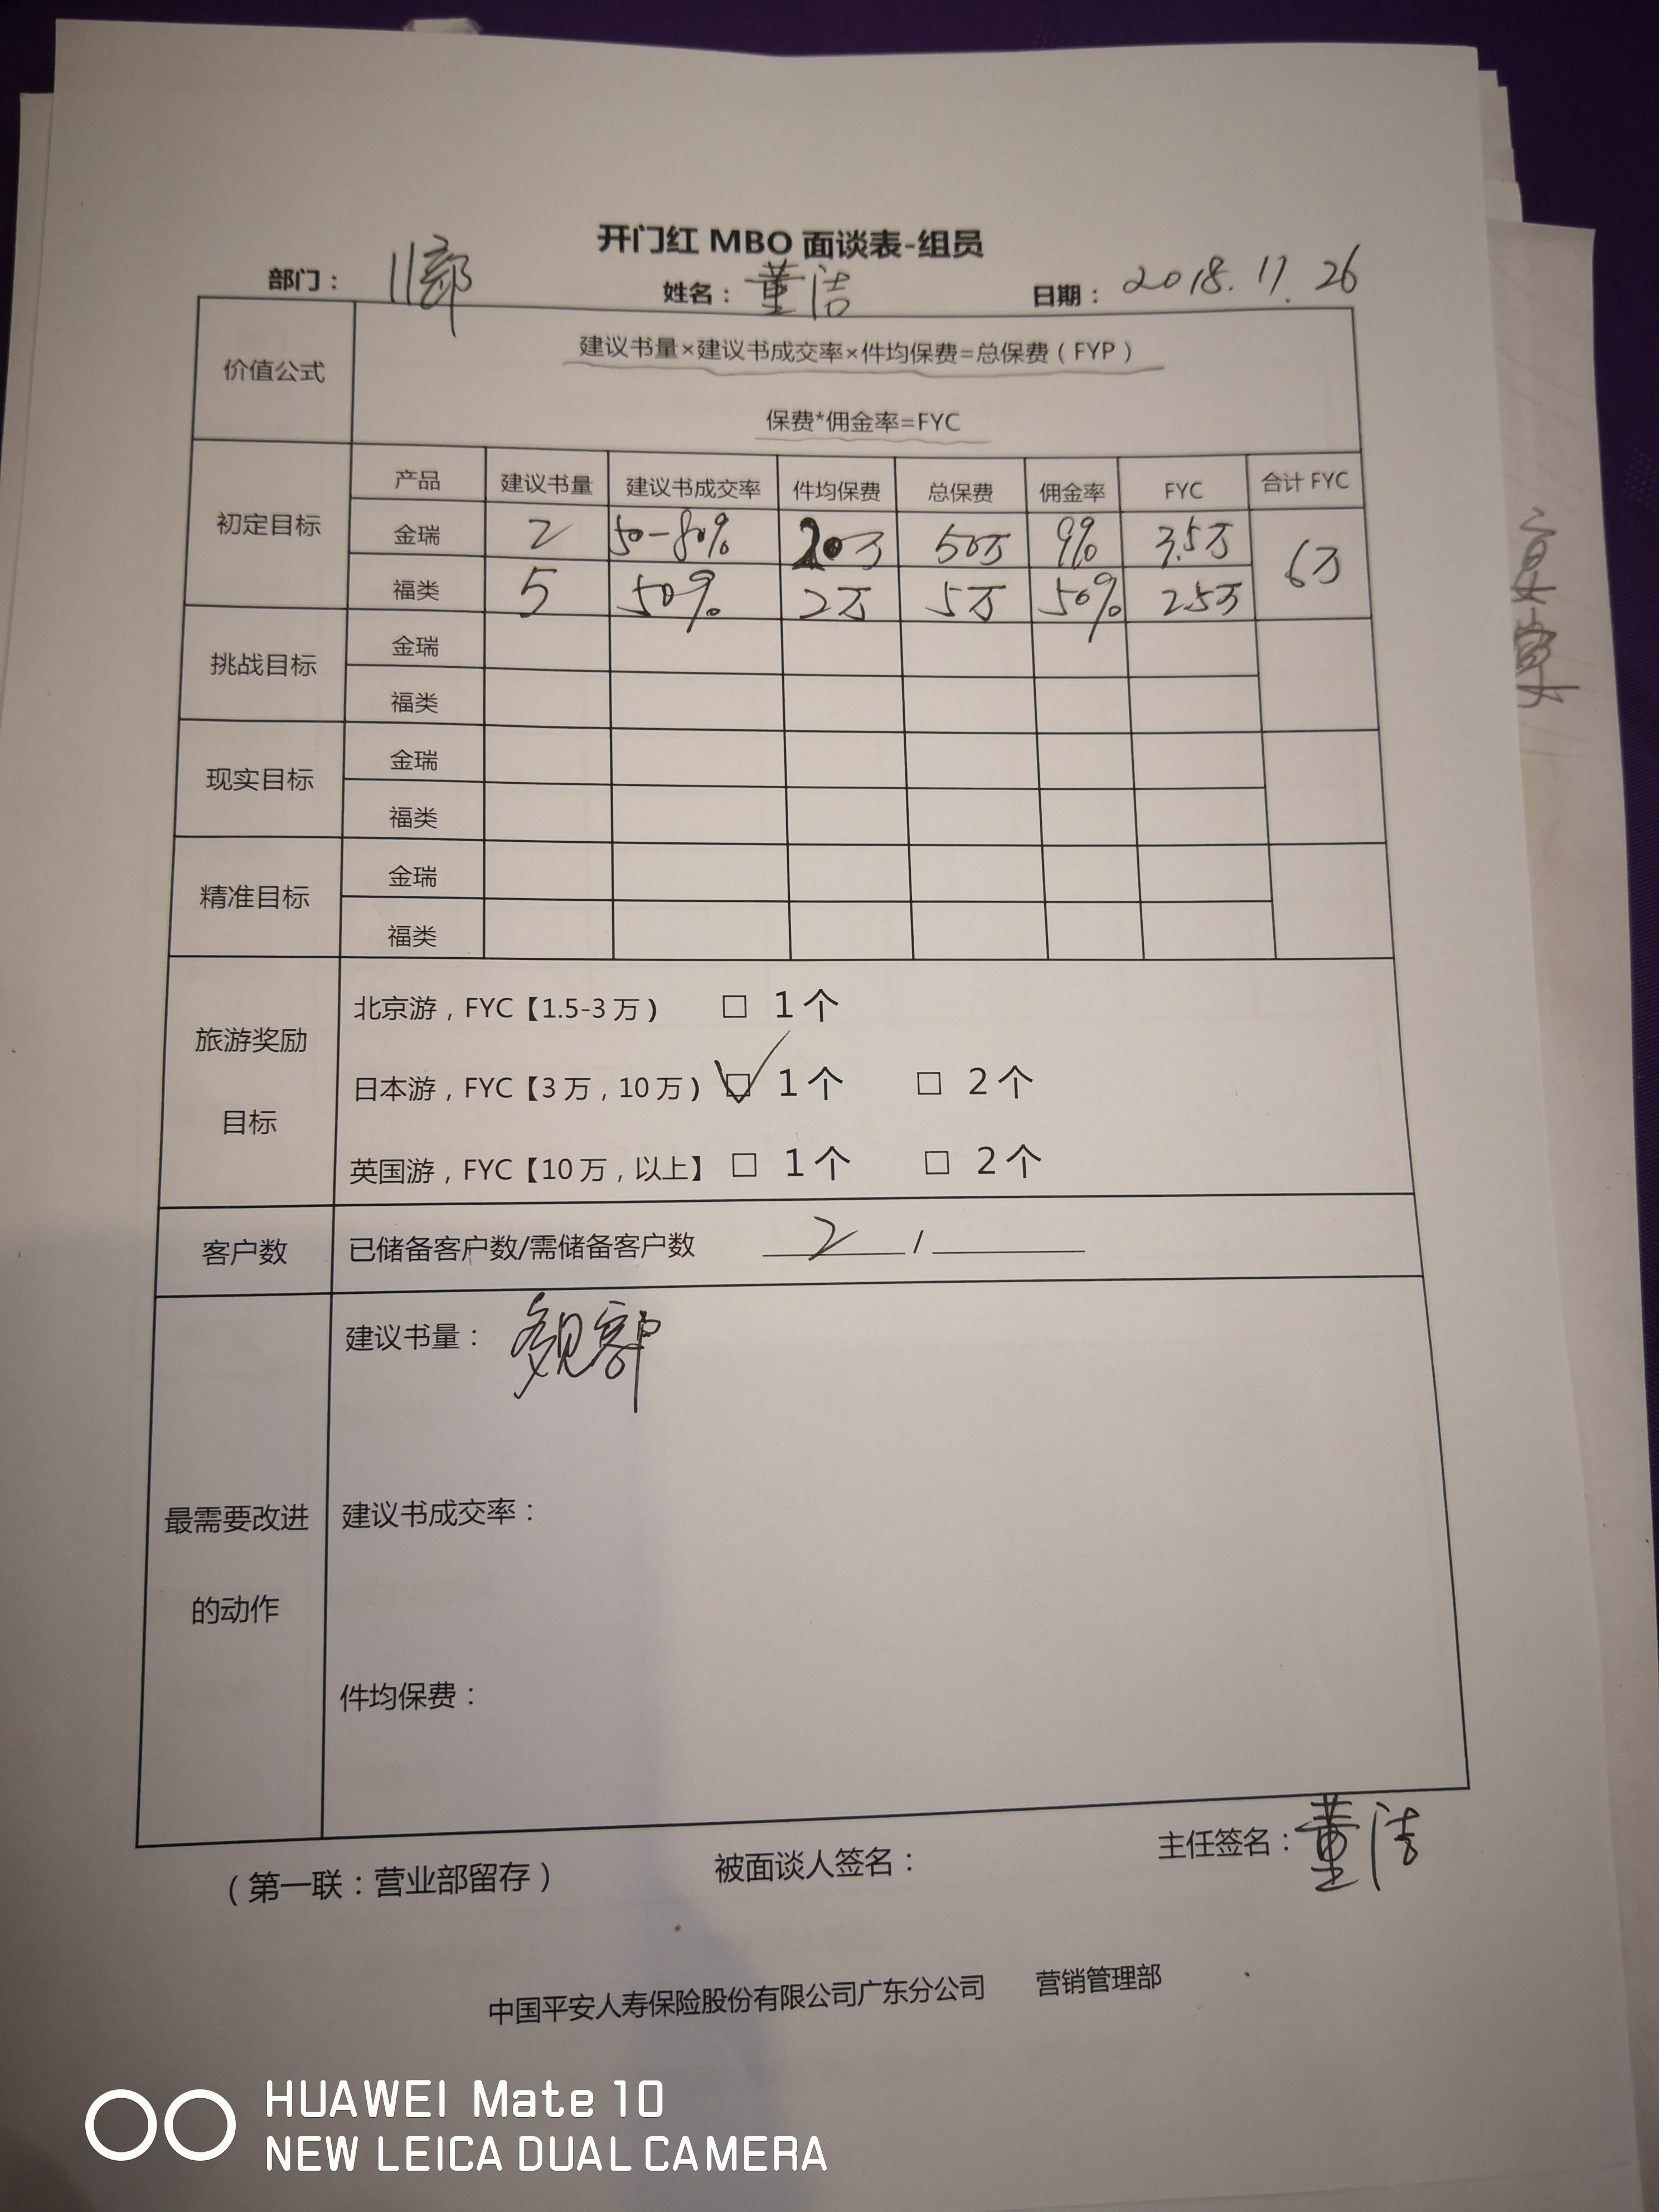 开门红 MBO 面谈表-组员
部门： 11部 姓名：董洁 日期：2018.11.26
价值公式
建议书量×建议书成交率×件均保费=总保费（FYP）
保费*佣金率=FYC
初定目标 产品 建议书量 建议书成交率 件均保费 总保费 佣金率 FYC 合计 FYC
金瑞 2 50-80% 20万 50万 9% 3.5万 6万
福类 5 50% 2万 5万 50% 2.5万
挑战目标 金瑞
福类
现实目标 金瑞
福类
精准目标 金瑞
福类
旅游奖励
目标
北京游，FYC【1.5-3万） □ 1个
日本游，FYC【3万，10万） ☑ 1个 □ 2个
英国游，FYC【10万，以上】 □ 1个 □ 2个
客户数 已储备客户数/需储备客户数 2 /
最需要改进
的动作
建议书量：
建议书成交率：
件均保费：
（第一联：营业部留存） 被面谈人签名： 主任签名：董洁
中国平安人寿保险股份有限公司广东分公司 营销管理部
HUAWEI Mate 10
NEW LEICA DUAL CAMERA